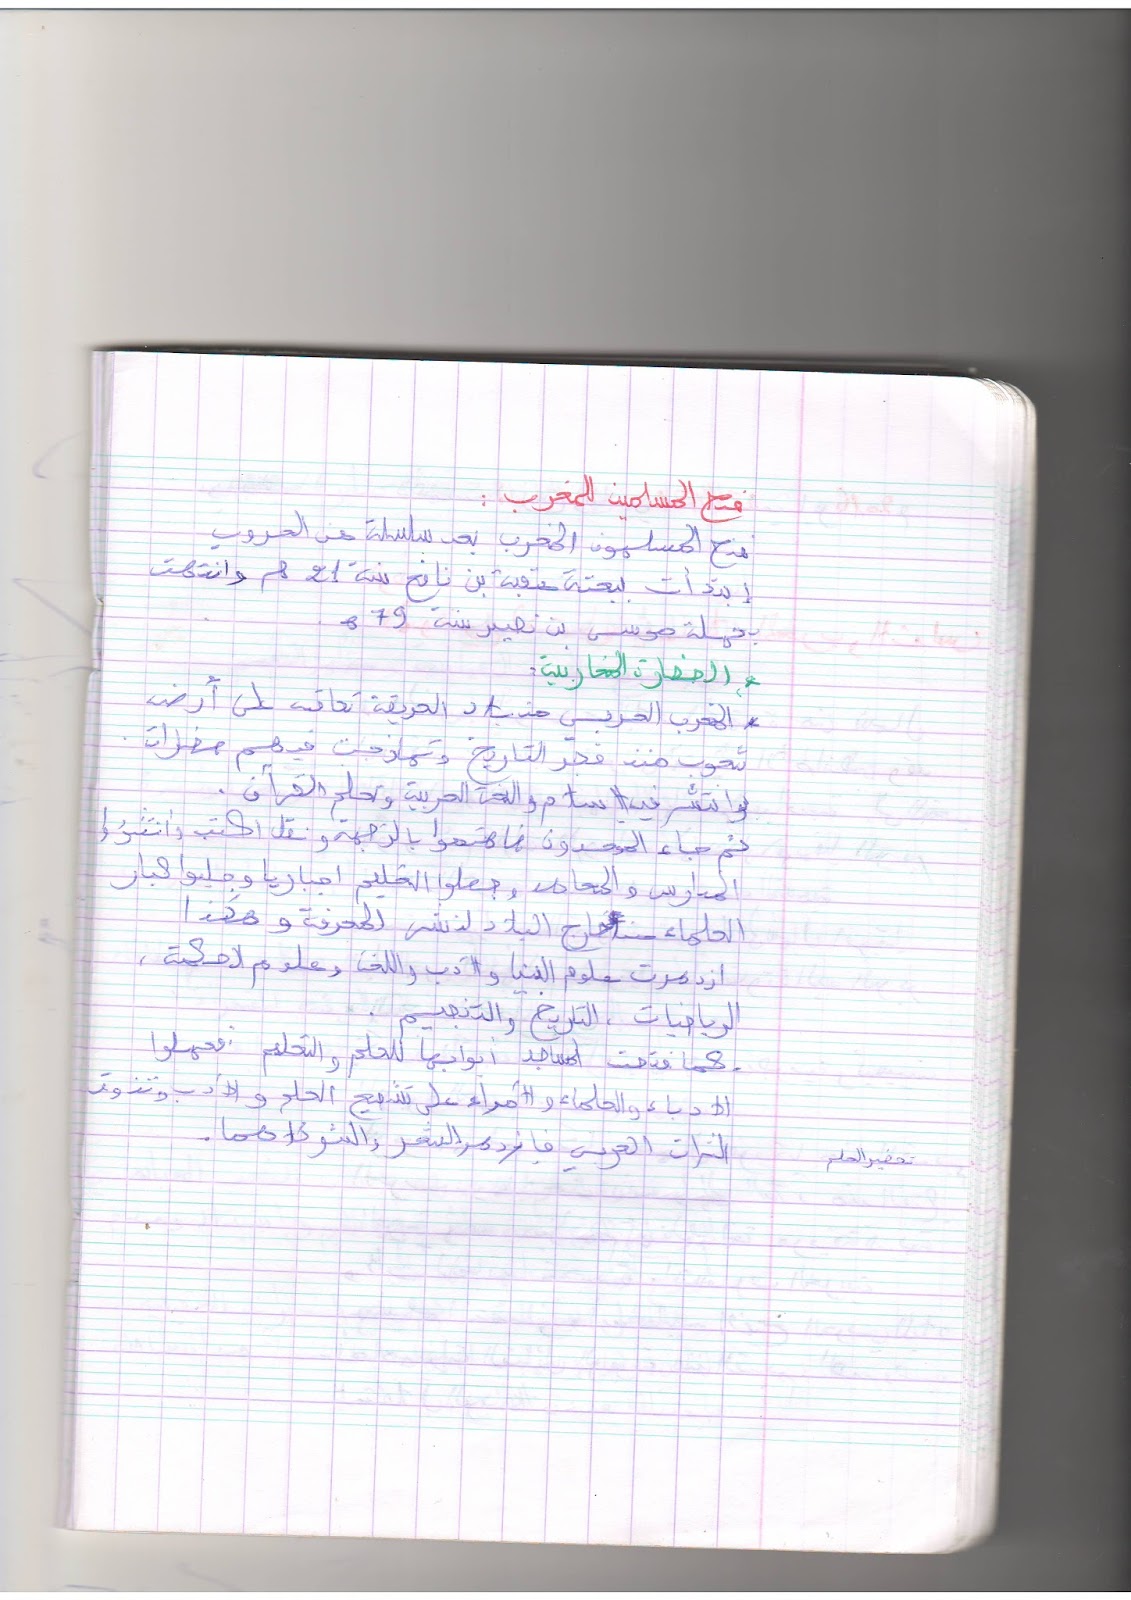 فتح المسلمين للمغرب :
فتح المسلمون المغرب بعد سلسلة من الحروب
إبتدأت ببعثة عقبة بن نافع سنة 21 هـ وانتهت
بحملة موسى بن نصير سنة 79 هـ
* الحضارة المغاربية:
* المغرب العربي من بلاد العريقة تعاقب على أرضه
شعوب منذ فجر التاريخ وتمازجت فيهم حضارات .
وانتشر فيه الاسلام واللغة العربية وتعلم القرآن .
ثم جاء الموحدون فاهتموا بالترجمة ونقل الكتب وانشؤوا
المدارس والمعاهد وجعلوا التعليم اجباريا وجلبوا كبار
العلماء من خارج البلاد لنشر المعرفة وهكذا
ازدهرت علوم الدنيا والادب واللغة وعلوم الحكمة ،
الرياضيات ، التاريخ والتنجيم .
. كما فتحت المساجد أبوابها للعلم والتعلم فعملوا
الادباء والعلماء والأمراء على تشجيع العلم والأدب وتذوق
التراث العربي فازدهر الشعر والنثر كلاهما .
تحضير العلم